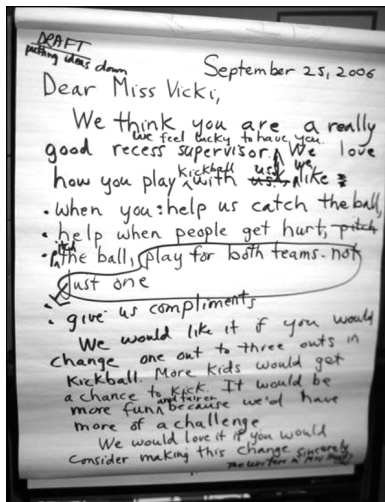 DRAFT
putting ideas down
September 25, 2006
Dear Miss Vicki,
We think you are a really
we feel lucky to have you.
good recess supervisor. We love
how you play kickball with us. we like
• when you: help us catch the ball,
• help when people get hurt, pitch
• pitch the ball, play for both teams - not
just one
• give us compliments
We would like it if you would
change one out to three outs in
kickball. More kids would get
a chance to kick. It would be
more fun and fairer because we'd have
more of a challenge
We would love it if you would
consider making this change. Sincerely
The writers in